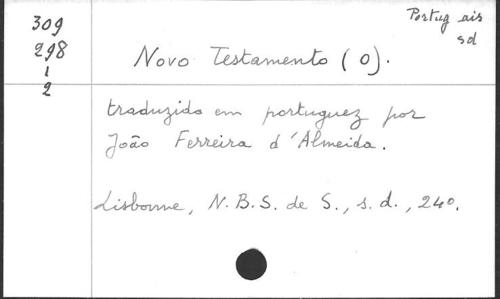 309
298
1
2
Portugais
sd
Novo Testamento (O).
traduzido em portuguez por
João Ferreira d'Almeida.
Lisbonne, N.B.S. de S., s.d., 24o.